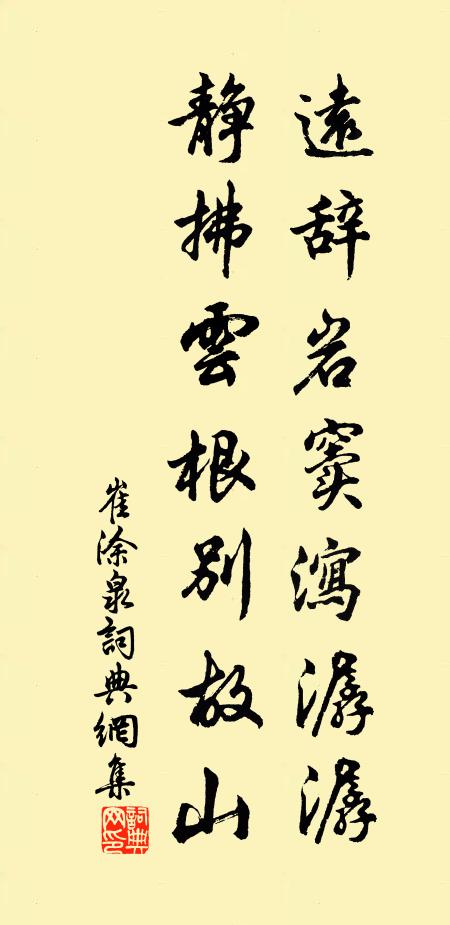 遠辞岩窦瀉潺潺
静拂雲根別故山
崔涂泉詞典網集
詞典网印